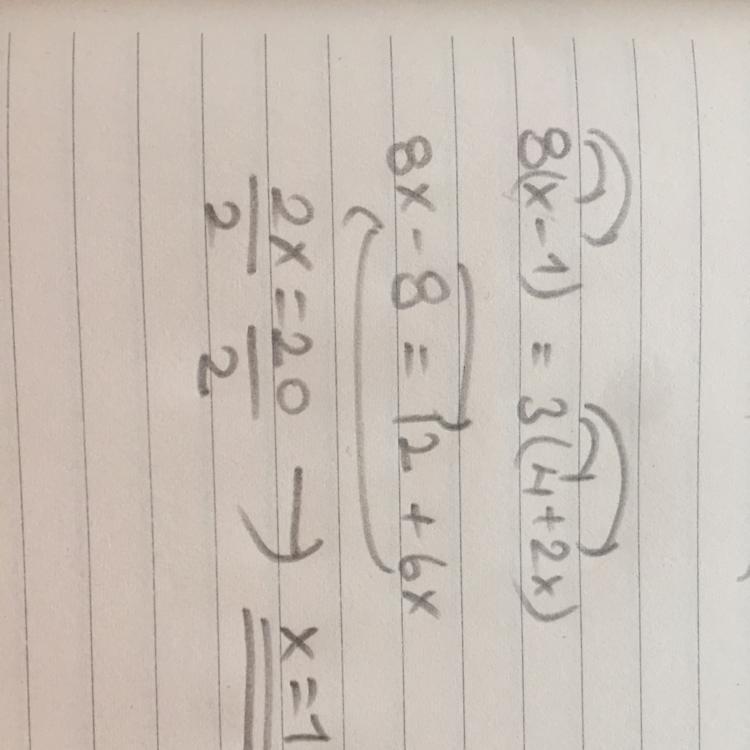 8(x-1) = 3(4+2x)
8x - 8 = 12 + 6x
2x = 20 → x=1
2 2